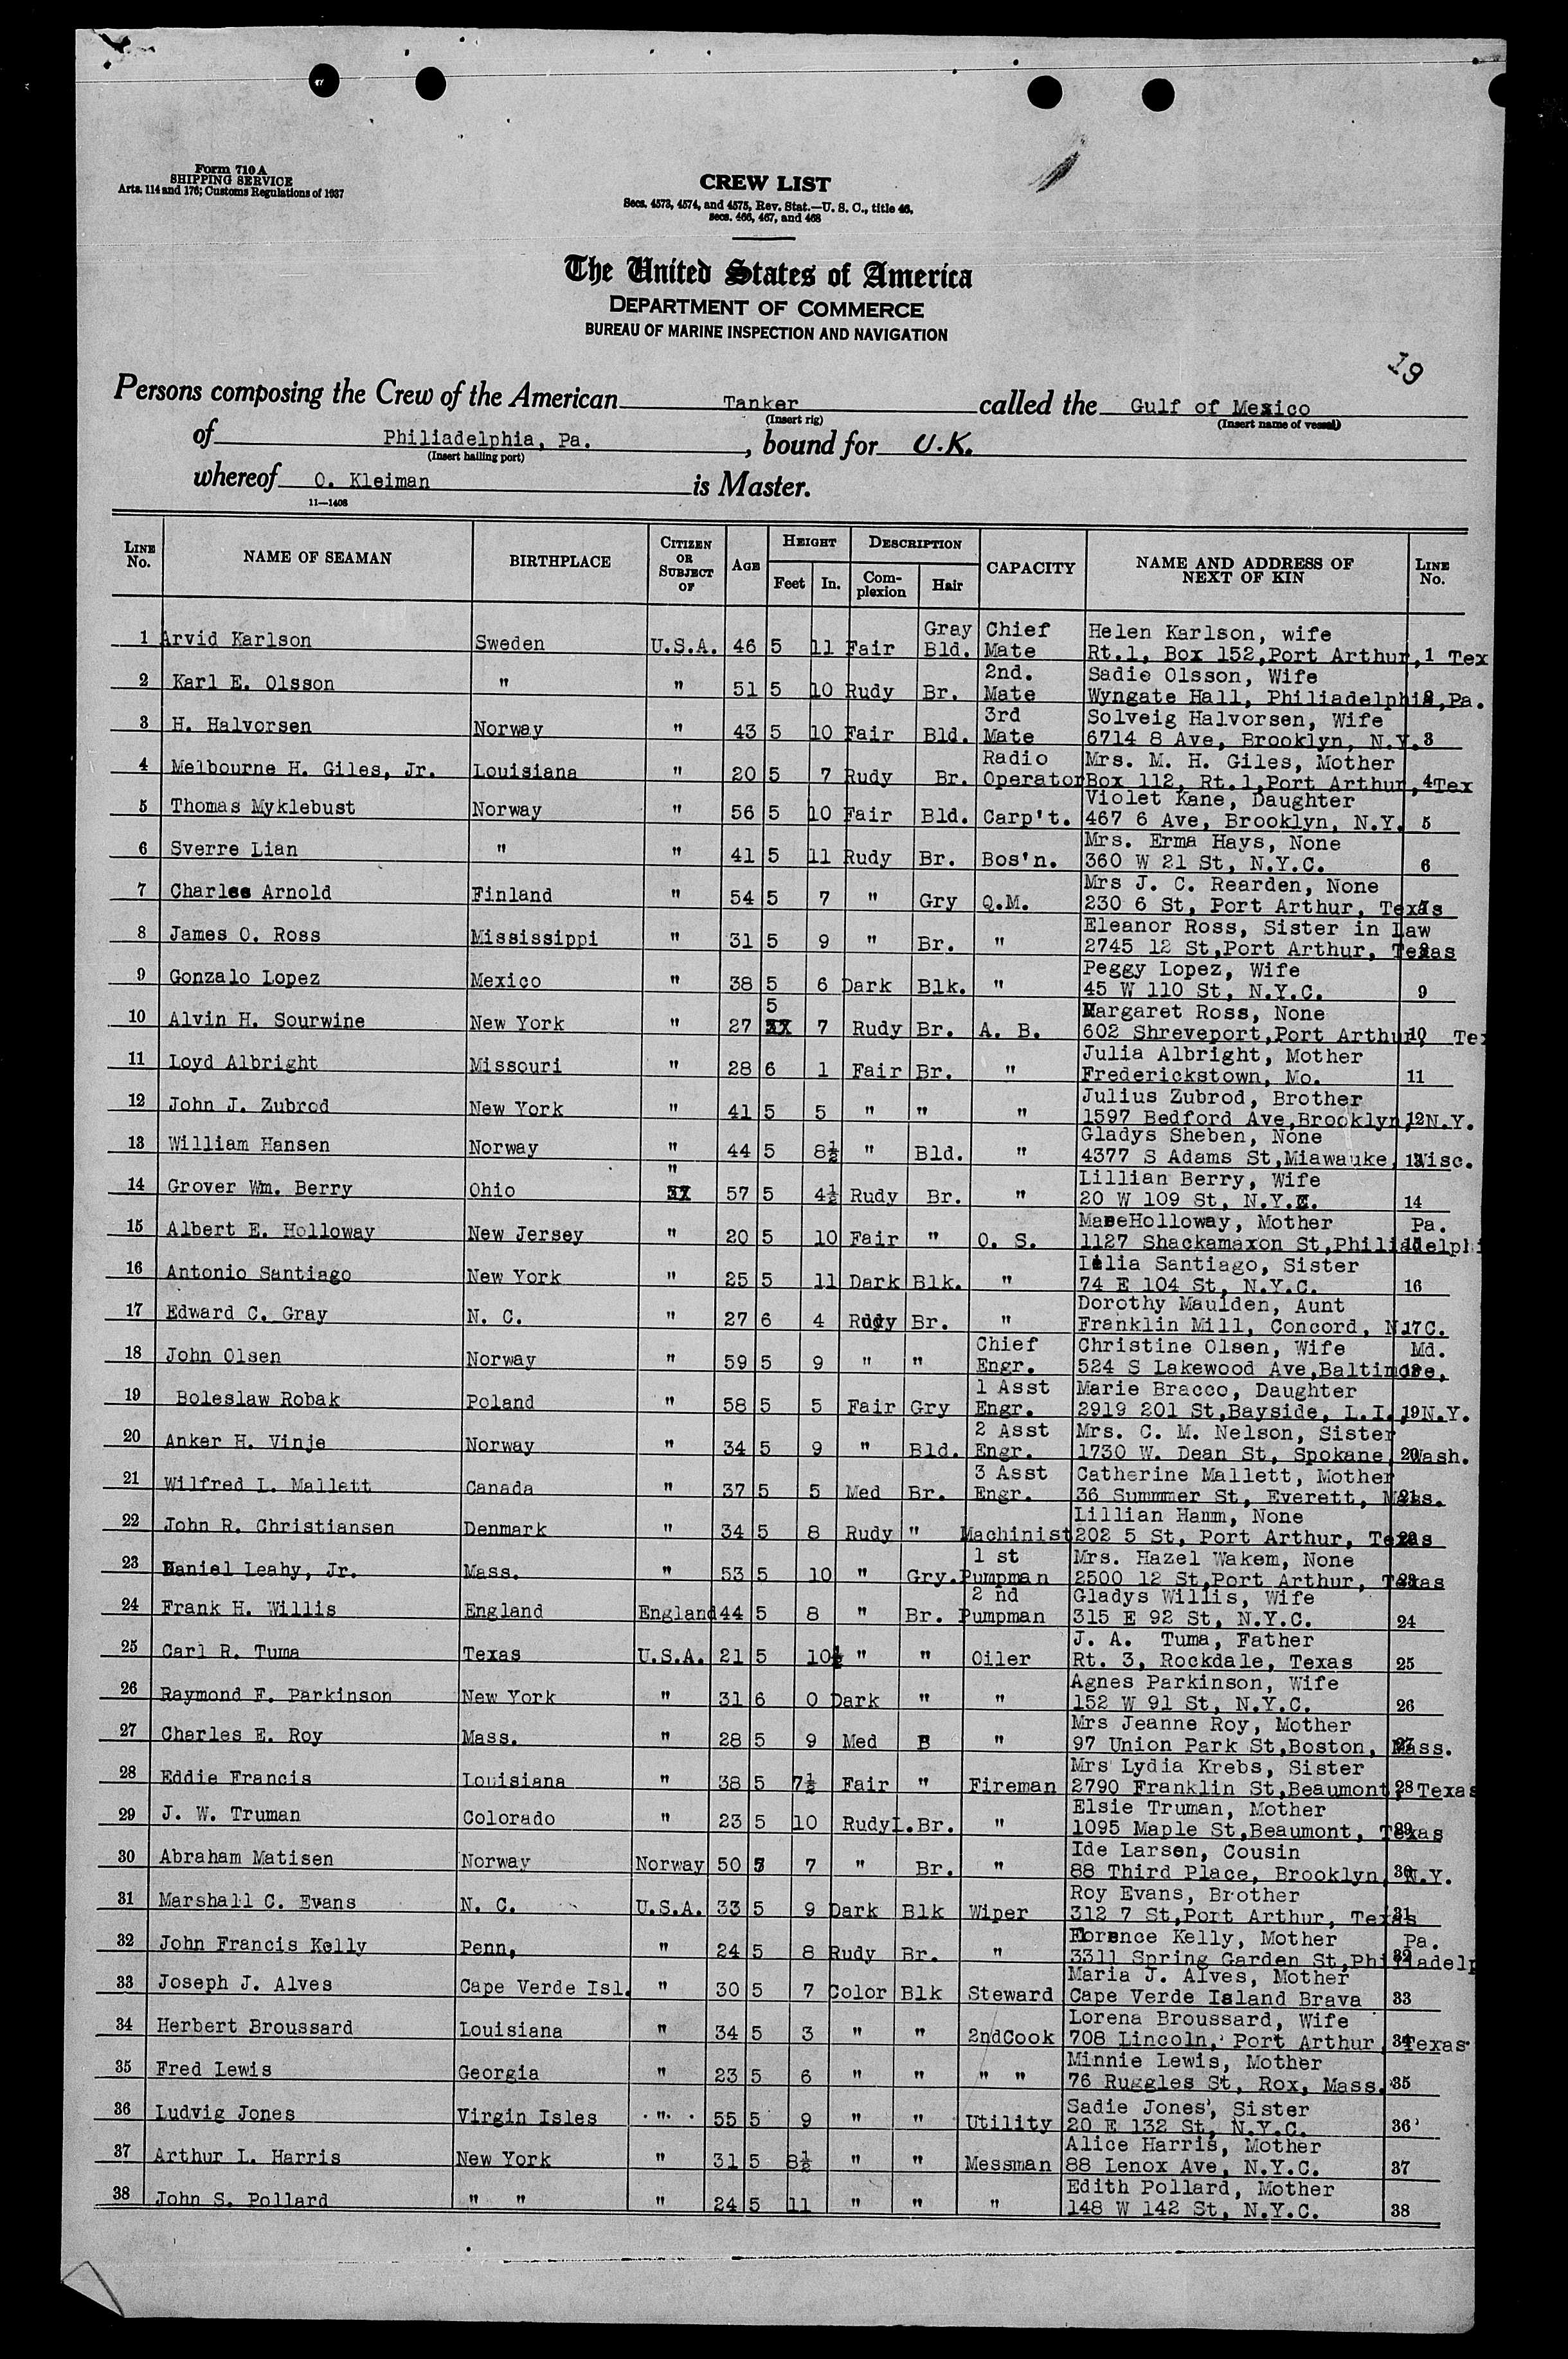 Form 710 A
SHIPPING SERVICE
Arts. 114 and 176; Customs Regulations of 1937
CREW LIST
Secs. 4573, 4574, and 4575, Rev. Stat.—U. S. C., title 46,
secs. 466, 467, and 468
The United States of America
DEPARTMENT OF COMMERCE
BUREAU OF MARINE INSPECTION AND NAVIGATION
19
Persons composing the Crew of the American Tanker called the Gulf of Mexico
(Insert rig) (Insert name of vessel)
of Philiadelphia, Pa. , bound for U.K.
(Insert hailing port)
whereof O. Kleiman is Master.
11—1408
LINE No. NAME OF SEAMAN BIRTHPLACE CITIZEN OR SUBJECT OF AGE HEIGHT Feet In. DESCRIPTION Complexion Hair CAPACITY NAME AND ADDRESS OF NEXT OF KIN LINE No.
1 Arvid Karlson Sweden U.S.A. 46 5 11 Fair Gray Bld. Chief Mate Helen Karlson, wife
Rt.1, Box 152,Port Arthur, Tex 1
2 Karl E. Olsson " " 51 5 10 Rudy Br. 2nd. Mate Sadie Olsson, Wife
Wyngate Hall, Philiadelphia,Pa. 2
3 H. Halvorsen Norway " 43 5 10 Fair Bld. 3rd Mate Solveig Halvorsen, Wife
6714 8 Ave, Brooklyn, N.Y. 3
4 Melbourne H. Giles, Jr. Louisiana " 20 5 7 Rudy Br. Radio Operator Mrs. M. H. Giles, Mother
Box 112, Rt.1,Port Arthur, Tex 4
5 Thomas Myklebust Norway " 56 5 10 Fair Bld. Carp't. Violet Kane, Daughter
467 6 Ave, Brooklyn, N.Y. 5
6 Sverre Lian " " 41 5 11 Rudy Br. Bos'n. Mrs. Erma Hays, None
360 W 21 St, N.Y.C. 6
7 Charles Arnold Finland " 54 5 7 " Gry Q.M. Mrs J. C. Rearden, None
230 6 St, Port Arthur, Texas 7
8 James O. Ross Mississippi " 31 5 9 " Br. " Eleanor Ross, Sister in Law
2745 12 St,Port Arthur, Texas 8
9 Gonzalo Lopez Mexico " 38 5 6 Dark Blk. " Peggy Lopez, Wife
45 W 110 St, N.Y.C. 9
10 Alvin H. Sourwine New York " 27 5 7 Rudy Br. A. B. Margaret Ross, None
602 Shreveport,Port Arthur, Tex 10
11 Loyd Albright Missouri " 28 6 1 Fair Br. " Julia Albright, Mother
Frederickstown, Mo. 11
12 John J. Zubrod New York " 41 5 5 " " " Julius Zubrod, Brother
1597 Bedford Ave,Brooklyn, N.Y. 12
13 William Hansen Norway " 44 5 8½ " Bld. " Gladys Sheben, None
4377 S Adams St,Miawauke, Wisc. 13
14 Grover Wm. Berry Ohio " 57 5 4½ Rudy Br. " Lillian Berry, Wife
20 W 109 St, N.Y.C. 14
15 Albert E. Holloway New Jersey " 20 5 10 Fair " O. S. Holloway, Mother Pa.
1127 Shackamaxon St,Philiadelphi 15
16 Antonio Santiago New York " 25 5 11 Dark Blk. " Lilia Santiago, Sister
74 E 104 St, N.Y.C. 16
17 Edward C. Gray N. C. " 27 6 4 Rudy Br. " Dorothy Maulden, Aunt
Franklin Mill, Concord, N. C. 17
18 John Olsen Norway " 59 5 9 " " Chief Engr. Christine Olsen, Wife Md.
524 S Lakewood Ave,Baltimore, 18
19 Boleslaw Robak Poland " 58 5 5 Fair Gry 1 Asst Engr. Marie Bracco, Daughter
2919 201 St,Bayside, L.I., N.Y. 19
20 Anker H. Vinje Norway " 34 5 9 " Bld. 2 Asst Engr. Mrs. C. M. Nelson, Sister
1730 W. Dean St, Spokane, Wash. 20
21 Wilfred L. Mallett Canada " 37 5 5 Med Br. 3 Asst Engr. Catherine Mallett, Mother
36 Summmer St, Everett, Mass. 21
22 John R. Christiansen Denmark " 34 5 8 Rudy " Machinist Lillian Hamm, None
202 5 St, Port Arthur, Texas 22
23 Daniel Leahy, Jr. Mass. " 53 5 10 " Gry. 1 st Pumpman Mrs. Hazel Wakem, None
2500 12 St,Port Arthur, Texas 23
24 Frank H. Willis England England 44 5 8 " Br. 2 nd Pumpman Gladys Willis, Wife
315 E 92 St, N.Y.C. 24
25 Carl R. Tuma Texas U.S.A. 21 5 10½ " " Oiler J. A. Tuma, Father
Rt. 3, Rockdale, Texas 25
26 Raymond F. Parkinson New York " 31 6 0 Dark " " Agnes Parkinson, Wife
152 W 91 St, N.Y.C. 26
27 Charles E. Roy Mass. " 28 5 9 Med " Mrs Jeanne Roy, Mother
97 Union Park St,Boston, Mass. 27
28 Eddie Francis Louisiana " 38 5 7½ Fair " Fireman Mrs Lydia Krebs, Sister
2790 Franklin St,Beaumont, Texas 28
29 J. W. Truman Colorado " 23 5 10 Rudy L.Br. " Elsie Truman, Mother
1095 Maple St,Beaumont, Texas 29
30 Abraham Matisen Norway Norway 50 5 7 " Br. " Ide Larsen, Cousin
88 Third Place, Brooklyn, N.Y. 30
31 Marshall C. Evans N. C. U.S.A. 33 5 9 Dark Blk Wiper Roy Evans, Brother
312 7 St,Port Arthur, Texas 31
32 John Francis Kelly Penn, " 24 5 8 Rudy Br. " Florence Kelly, Mother Pa.
3311 Spring Garden St,Philiadelp 32
33 Joseph J. Alves Cape Verde Isl. " 30 5 7 Color Blk Steward Maria J. Alves, Mother
Cape Verde Island Brava 33
34 Herbert Broussard Louisiana " 34 5 3 " " 2ndCook Lorena Broussard, Wife
708 Lincoln, Port Arthur, Texas 34
35 Fred Lewis Georgia " 23 5 6 " " " " Minnie Lewis, Mother
76 Ruggles St, Rox, Mass. 35
36 Ludvig Jones Virgin Isles " 55 5 9 " " Utility Sadie Jones, Sister
20 E 132 St, N.Y.C. 36
37 Arthur L. Harris New York " 31 5 8½ " " Messman Alice Harris, Mother
88 Lenox Ave, N.Y.C. 37
38 John S. Pollard " " " 24 5 11 " " " Edith Pollard, Mother
148 W 142 St, N.Y.C. 38